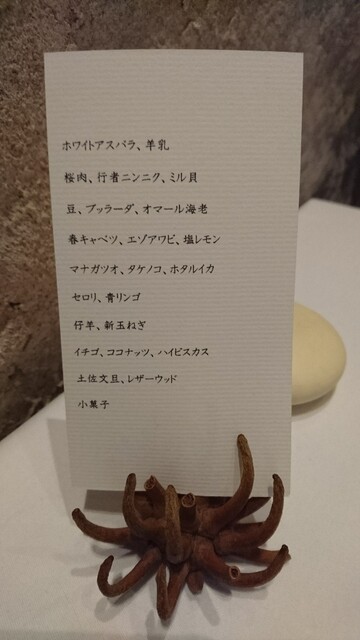 ホワイトアスパラ、羊乳
桜肉、行者ニンニク、ミル貝
豆、ブッラーダ、オマール海老
春キャベツ、エゾアワビ、塩レモン
マナガツオ、タケノコ、ホタルイカ
セロリ、青リンゴ
仔羊、新玉ねぎ
イチゴ、ココナッツ、ハイビスカス
土佐文旦、レザーウッド
小菓子